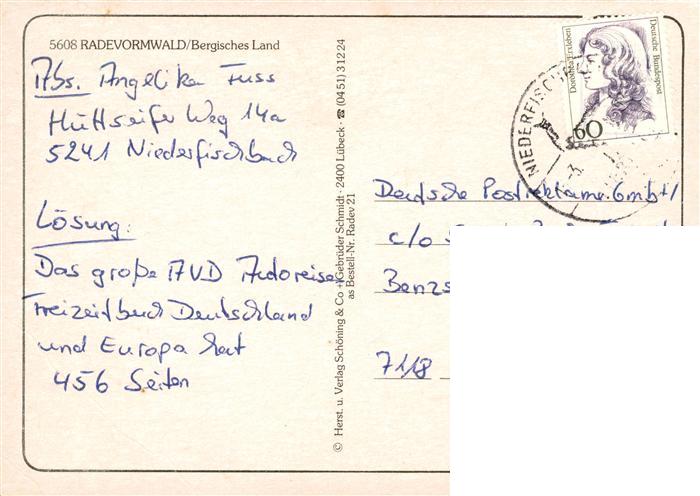 5608 RADEVORMWALD/Bergisches Land
Abs. Angelika Fuss
Hüttseifer Weg 14a
5241 Niederfischbach
Lösung:
Das große AVD Autoreise
Freizeitbuch Deutschland
und Europa hat
456 Seiten
© Herst. u. Verlag Schöning & Co + Gebrüder Schmidt · 2400 Lübeck · ☎ (04 51) 3 12 24
as Bestell-Nr. Radev 21
Dorothea Erxleben
Deutsche Bundespost
60
NIEDERFISCH
Deutsche Postreklame GmbH
c/o
Benzs
7118